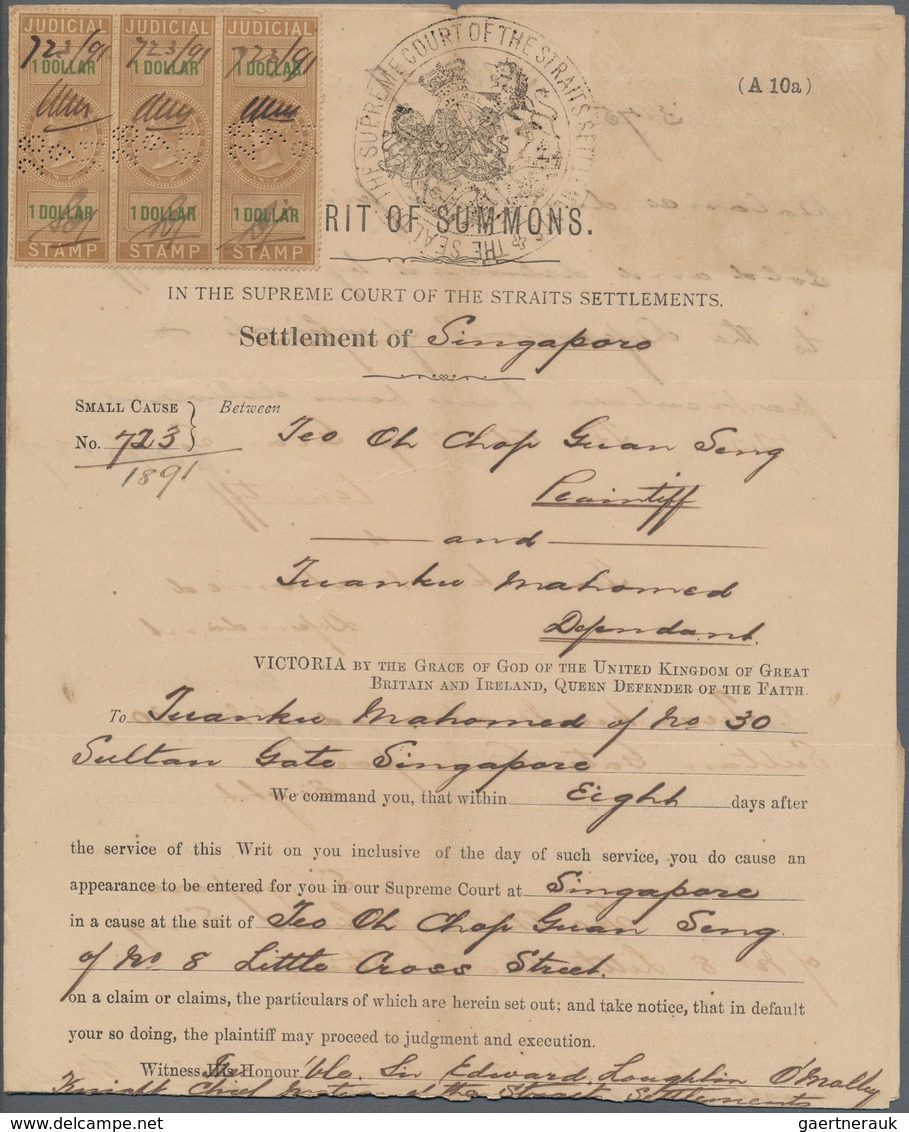 JUDICIAL JUDICIAL JUDICIAL
723/91 723/91 723/91
1 DOLLAR 1 DOLLAR 1 DOLLAR
1 DOLLAR 1 DOLLAR 1 DOLLAR
STAMP STAMP STAMP
THE SEAL OF THE SUPREME COURT OF THE STRAITS SETTLEMENTS
(A 10a)
RIT OF SUMMONS.
IN THE SUPREME COURT OF THE STRAITS SETTLEMENTS.
Settlement of Singapore
SMALL CAUSE } Between
No. 723
1891
Teo Oh Chop Guan Seng
Plaintiff
and
Tuanku Mahomed
Defendant.
VICTORIA BY THE GRACE OF GOD OF THE UNITED KINGDOM OF GREAT
BRITAIN AND IRELAND, QUEEN DEFENDER OF THE FAITH.
To Tuanku Mahomed of No 30
Sultan Gate Singapore
We command you, that within Eight days after
the service of this Writ on you inclusive of the day of such service, you do cause an
appearance to be entered for you in our Supreme Court at Singapore
in a cause at the suit of Teo Oh Chop Guan Seng
of No 8 Little Cross Street.
on a claim or claims, the particulars of which are herein set out; and take notice, that in default
your so doing, the plaintiff may proceed to judgment and execution.
Witness His The Honour'ble. Sir Edward Loughlin O'Malley
Knight Chief Justice of the Straits Settlements
gaertnerauk